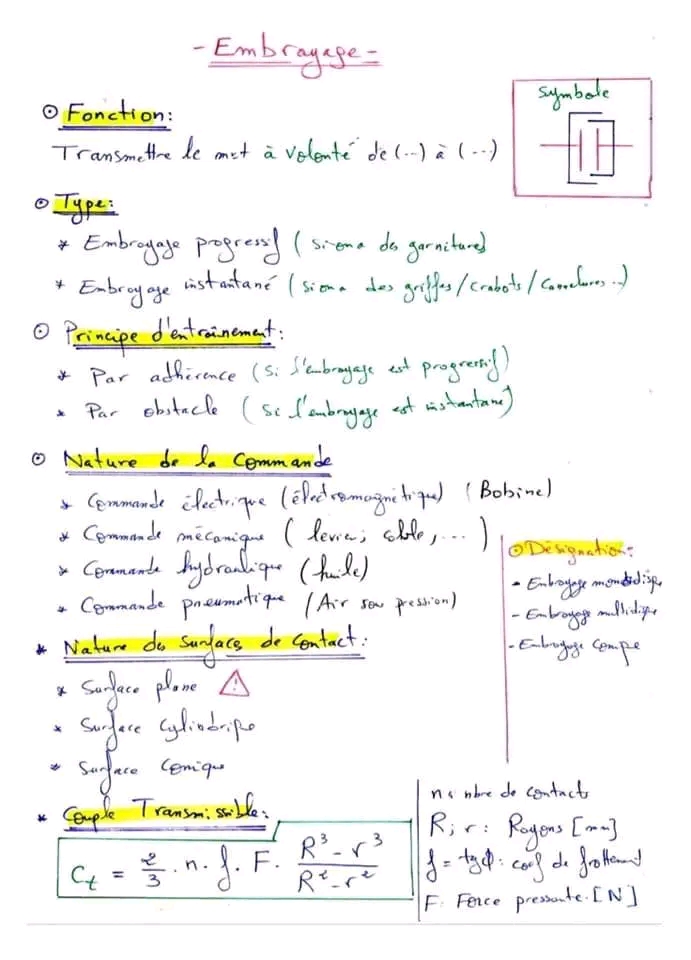 - Embrayage -
Symbole
⊙ Fonction:
Transmettre le mvt à volonté de (--) à (---)
⊙ Type:
* Embrayage progressif (si on a des garnitures)
* Embrayage instantané (si on a des griffes/Crabots/Cannelures ..)
⊙ Principe d'entrainement:
* Par adhérence (Si l'embrayage est progressif)
* Par obstacle (Si l'embrayage est instantané)
⊙ Nature de la Commande
* Commande électrique (électromagnétique) (Bobine)
* Commande mécanique (levier, cable, ...)
* Commande hydraulique (huile)
* Commande pneumatique (Air sou pression)
⊙ Désignation:
- Embrayage monodisque
- Embrayage multidisque
- Embrayage conique
* Nature des surfaces de contact:
* Surface plane ⚠
* Surface Cylindrique
* Surface Conique
* Couple Transmissible:
C_t = 2/3 . n . f . F . (R³ - r³)/(R² - r²)
n : nbre de contacts
R, r : Rayons [mm]
f = tgφ : coef de frottement
F : Force pressante. [N]